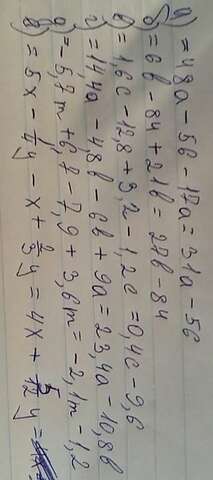 а) = 48a - 5b - 17a = 31a - 5b
б) = 6b - 84 + 21b = 27b - 84
в) = 1,6c - 12,8 + 3,2 - 1,2c = 0,4c - 9,6
г) = 14,4a - 4,8b - 6b + 9a = 23,4a - 10,8b
д) = 5,7m + 6,7 - 7,9 + 3,6m = -2,1m - 1,2
е) = 5x - 1/4y - x + 2/3y = 4x + 5/12y =